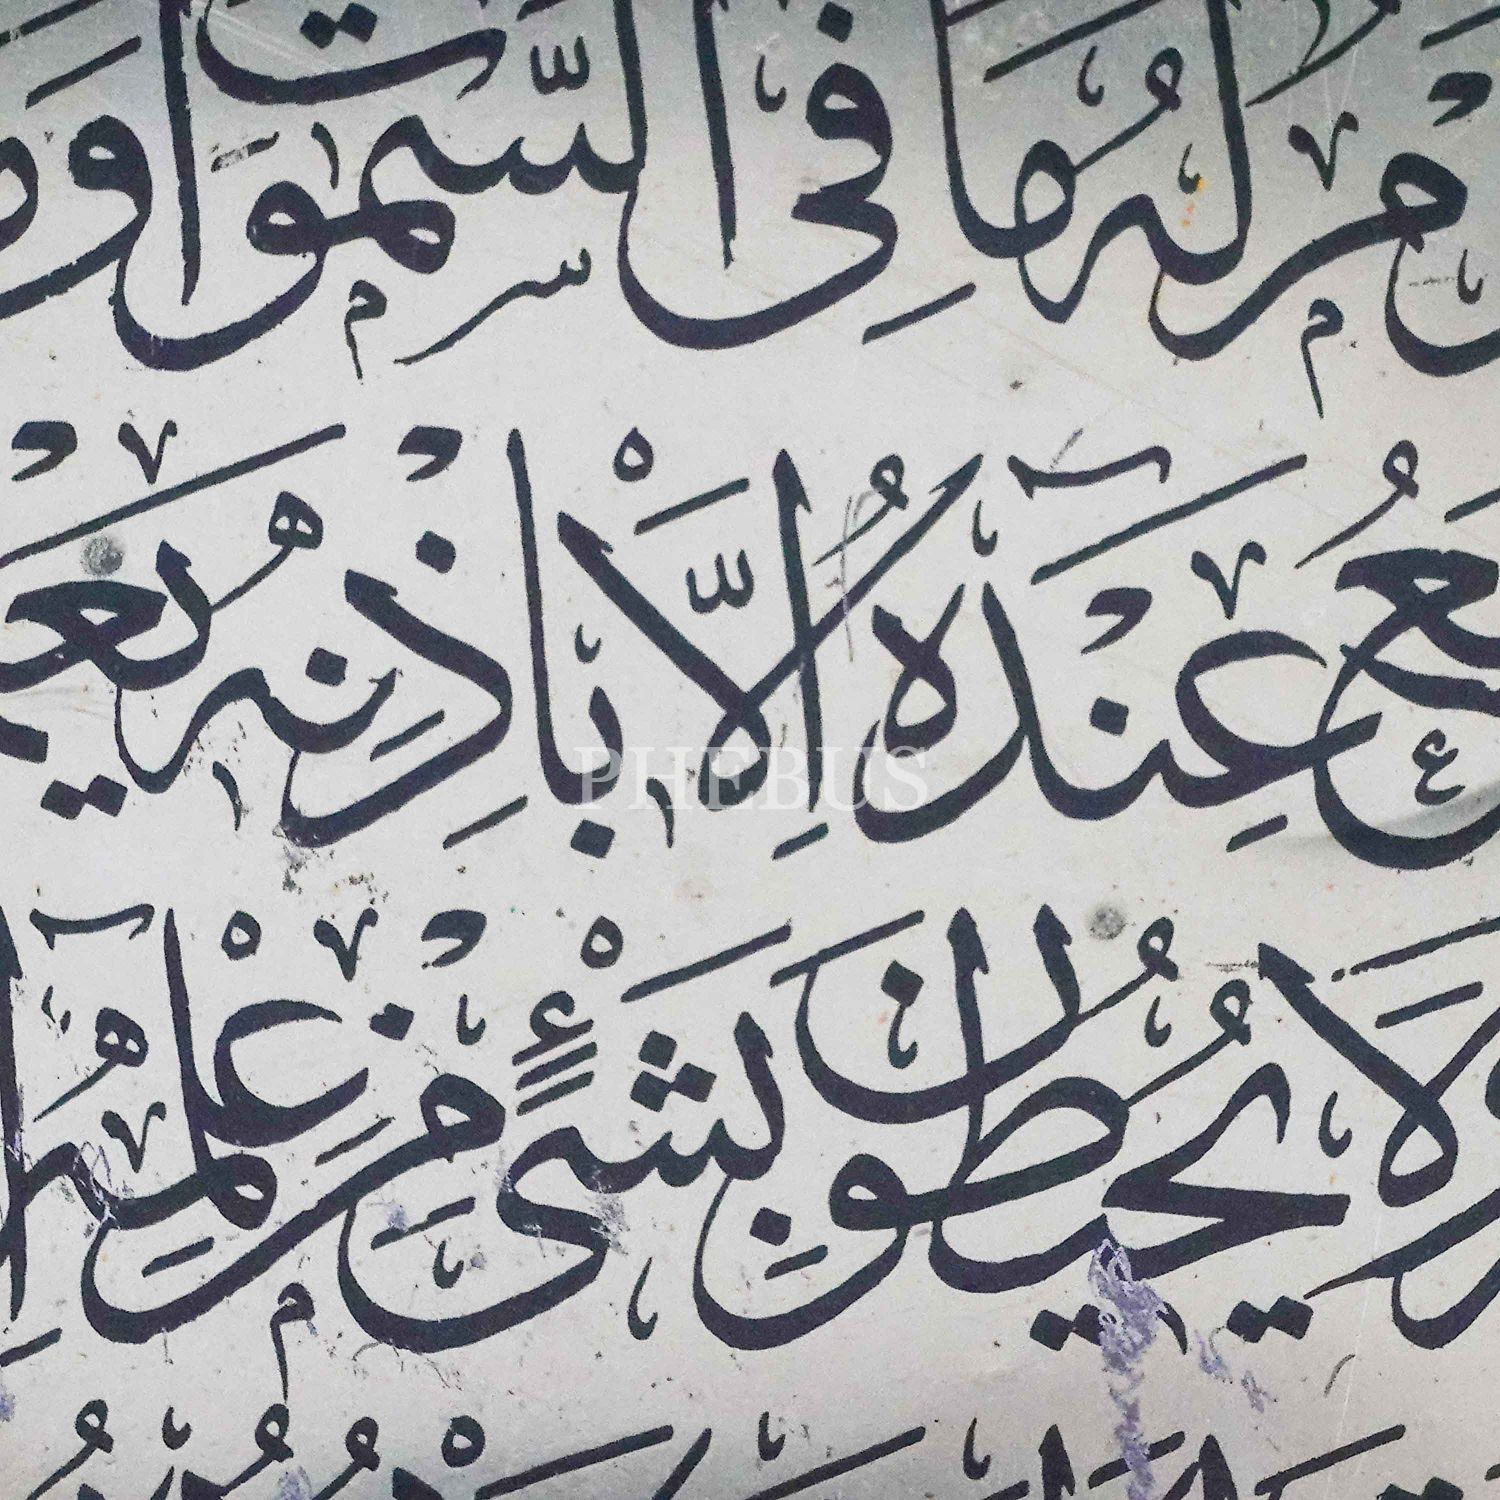 م لَهُ مَا فِي السَّمٰوَاتِ وَ
ـعُ عِنْدَهُ إِلَّا بِاِذْنِهٖ يَعْـ
وَلَا يُحٖيطُونَ بِشَيْءٍ مِنْ عِلْمِهٖ
PHEBUS